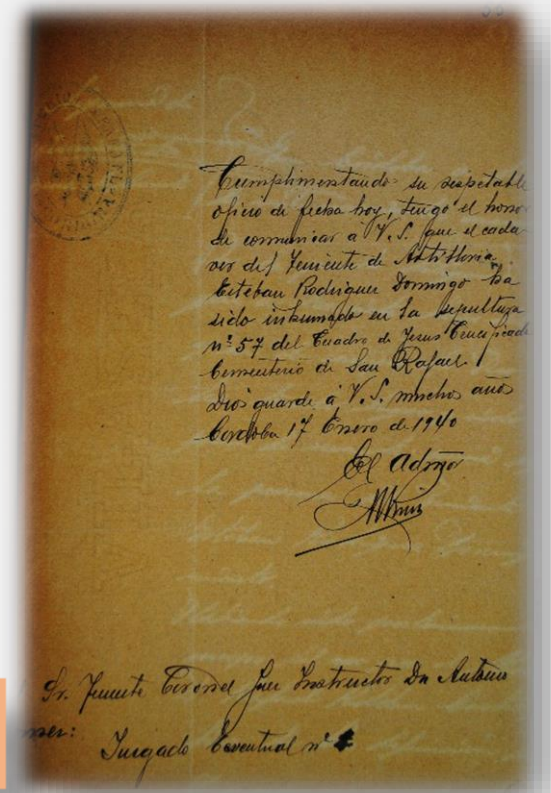 Cumplimentando su respetable
oficio de fecha hoy, tengo el honor
de comunicar a V.S. que el cada
ver del Teniente de Artilleria
Esteban Rodriguez Domingo ha
sido inhumado en la sepultura
nº 57 del Cuadro de Jesus Crucificado
Cementerio de San Rafael
Dios guarde á V.S. muchos años
Cordoba 17 Enero de 1940
El Admor
Sr. Teniente Coronel Juez Instructor Dn Antonio
Juzgado Eventual nº